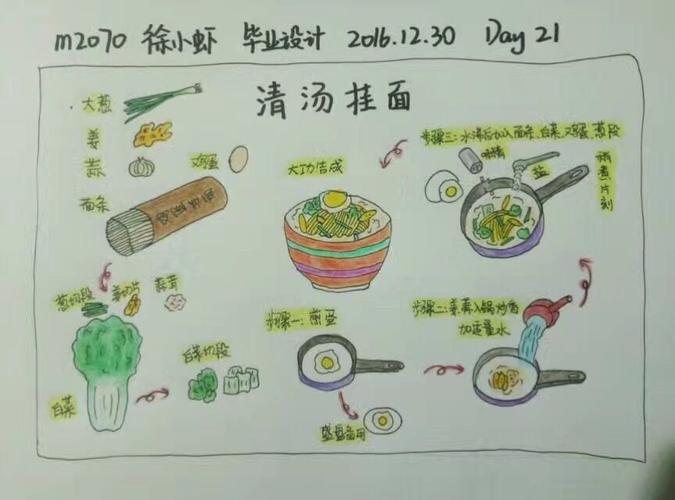 m2070 徐小虾 毕业设计 2016.12.30 Day 21
清汤挂面
大葱
姜
蒜
鸡蛋
面条
葱切段
姜切片
蒜茸
白菜
白菜切段
步骤一：煎蛋
盛盘备用
步骤二：姜、蒜入锅炒香
加适量水
步骤三：水沸后加入面条、白菜、鸡蛋、葱段
味精
盐
稍煮片刻
大功告成